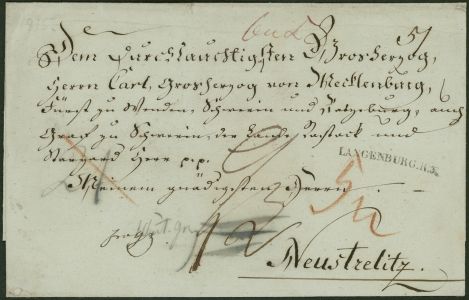 Dem Durchlauchtigsten Grosherzog,
Herrn Carl, Grosherzog von Mecklenburg,
Fürst zu Wenden, Schwerin und Ratzeburg, auch
Graf zu Schwerin, der Lande Rostock und
Stargard Herr p.p.
LANGENBURG.R.3.
Meinem gnädigsten Herrn
Neustrelitz.